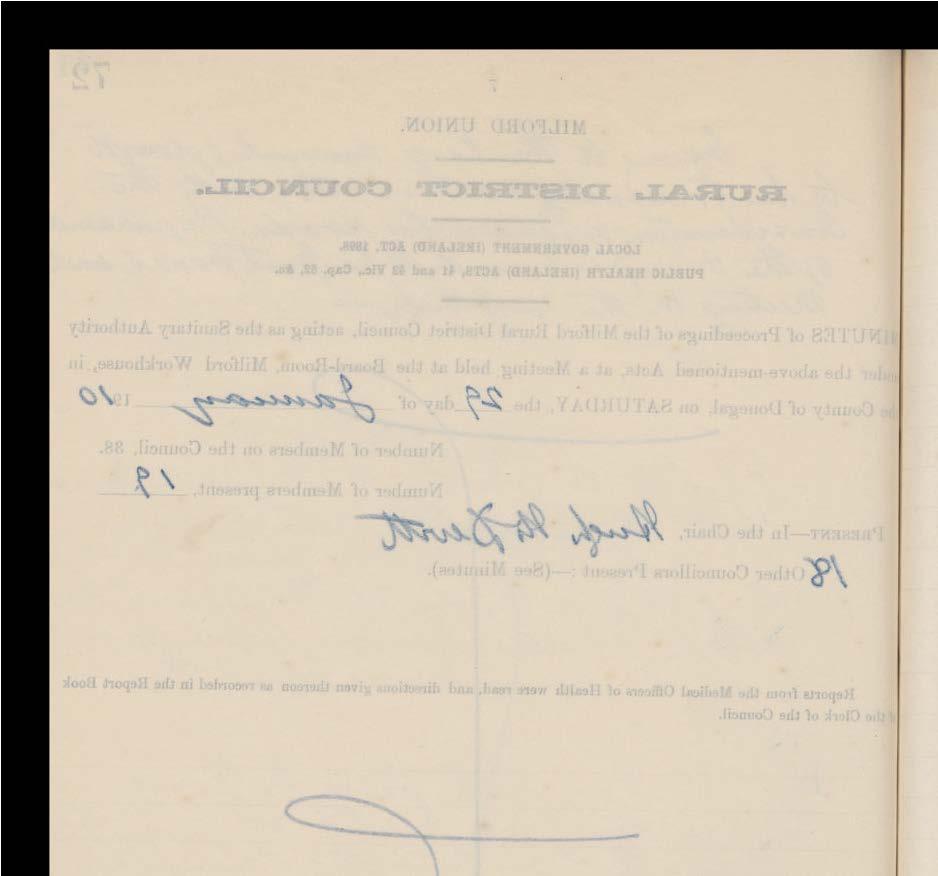 72
7
MILFORD UNION.
RURAL DISTRICT COUNCIL.
LOCAL GOVERNMENT (IRELAND) ACT, 1898.
PUBLIC HEALTH (IRELAND) ACTS, 41 and 42 Vic., Cap. 52, &c.
MINUTES of Proceedings of the Milford Rural District Council, acting as the Sanitary Authority
under the above-mentioned Acts, at a Meeting held at the Board-Room, Milford Workhouse, in
the County of Donegal, on SATURDAY, the 29 day of January 1910
Number of Members on the Council, 38.
Number of Members present, 19
PRESENT—In the Chair, Hugh McDevitt
18 Other Councillors Present :—(See Minutes).
Reports from the Medical Officers of Health were read, and directions given thereon as recorded in the Report Book
of the Clerk of the Council.